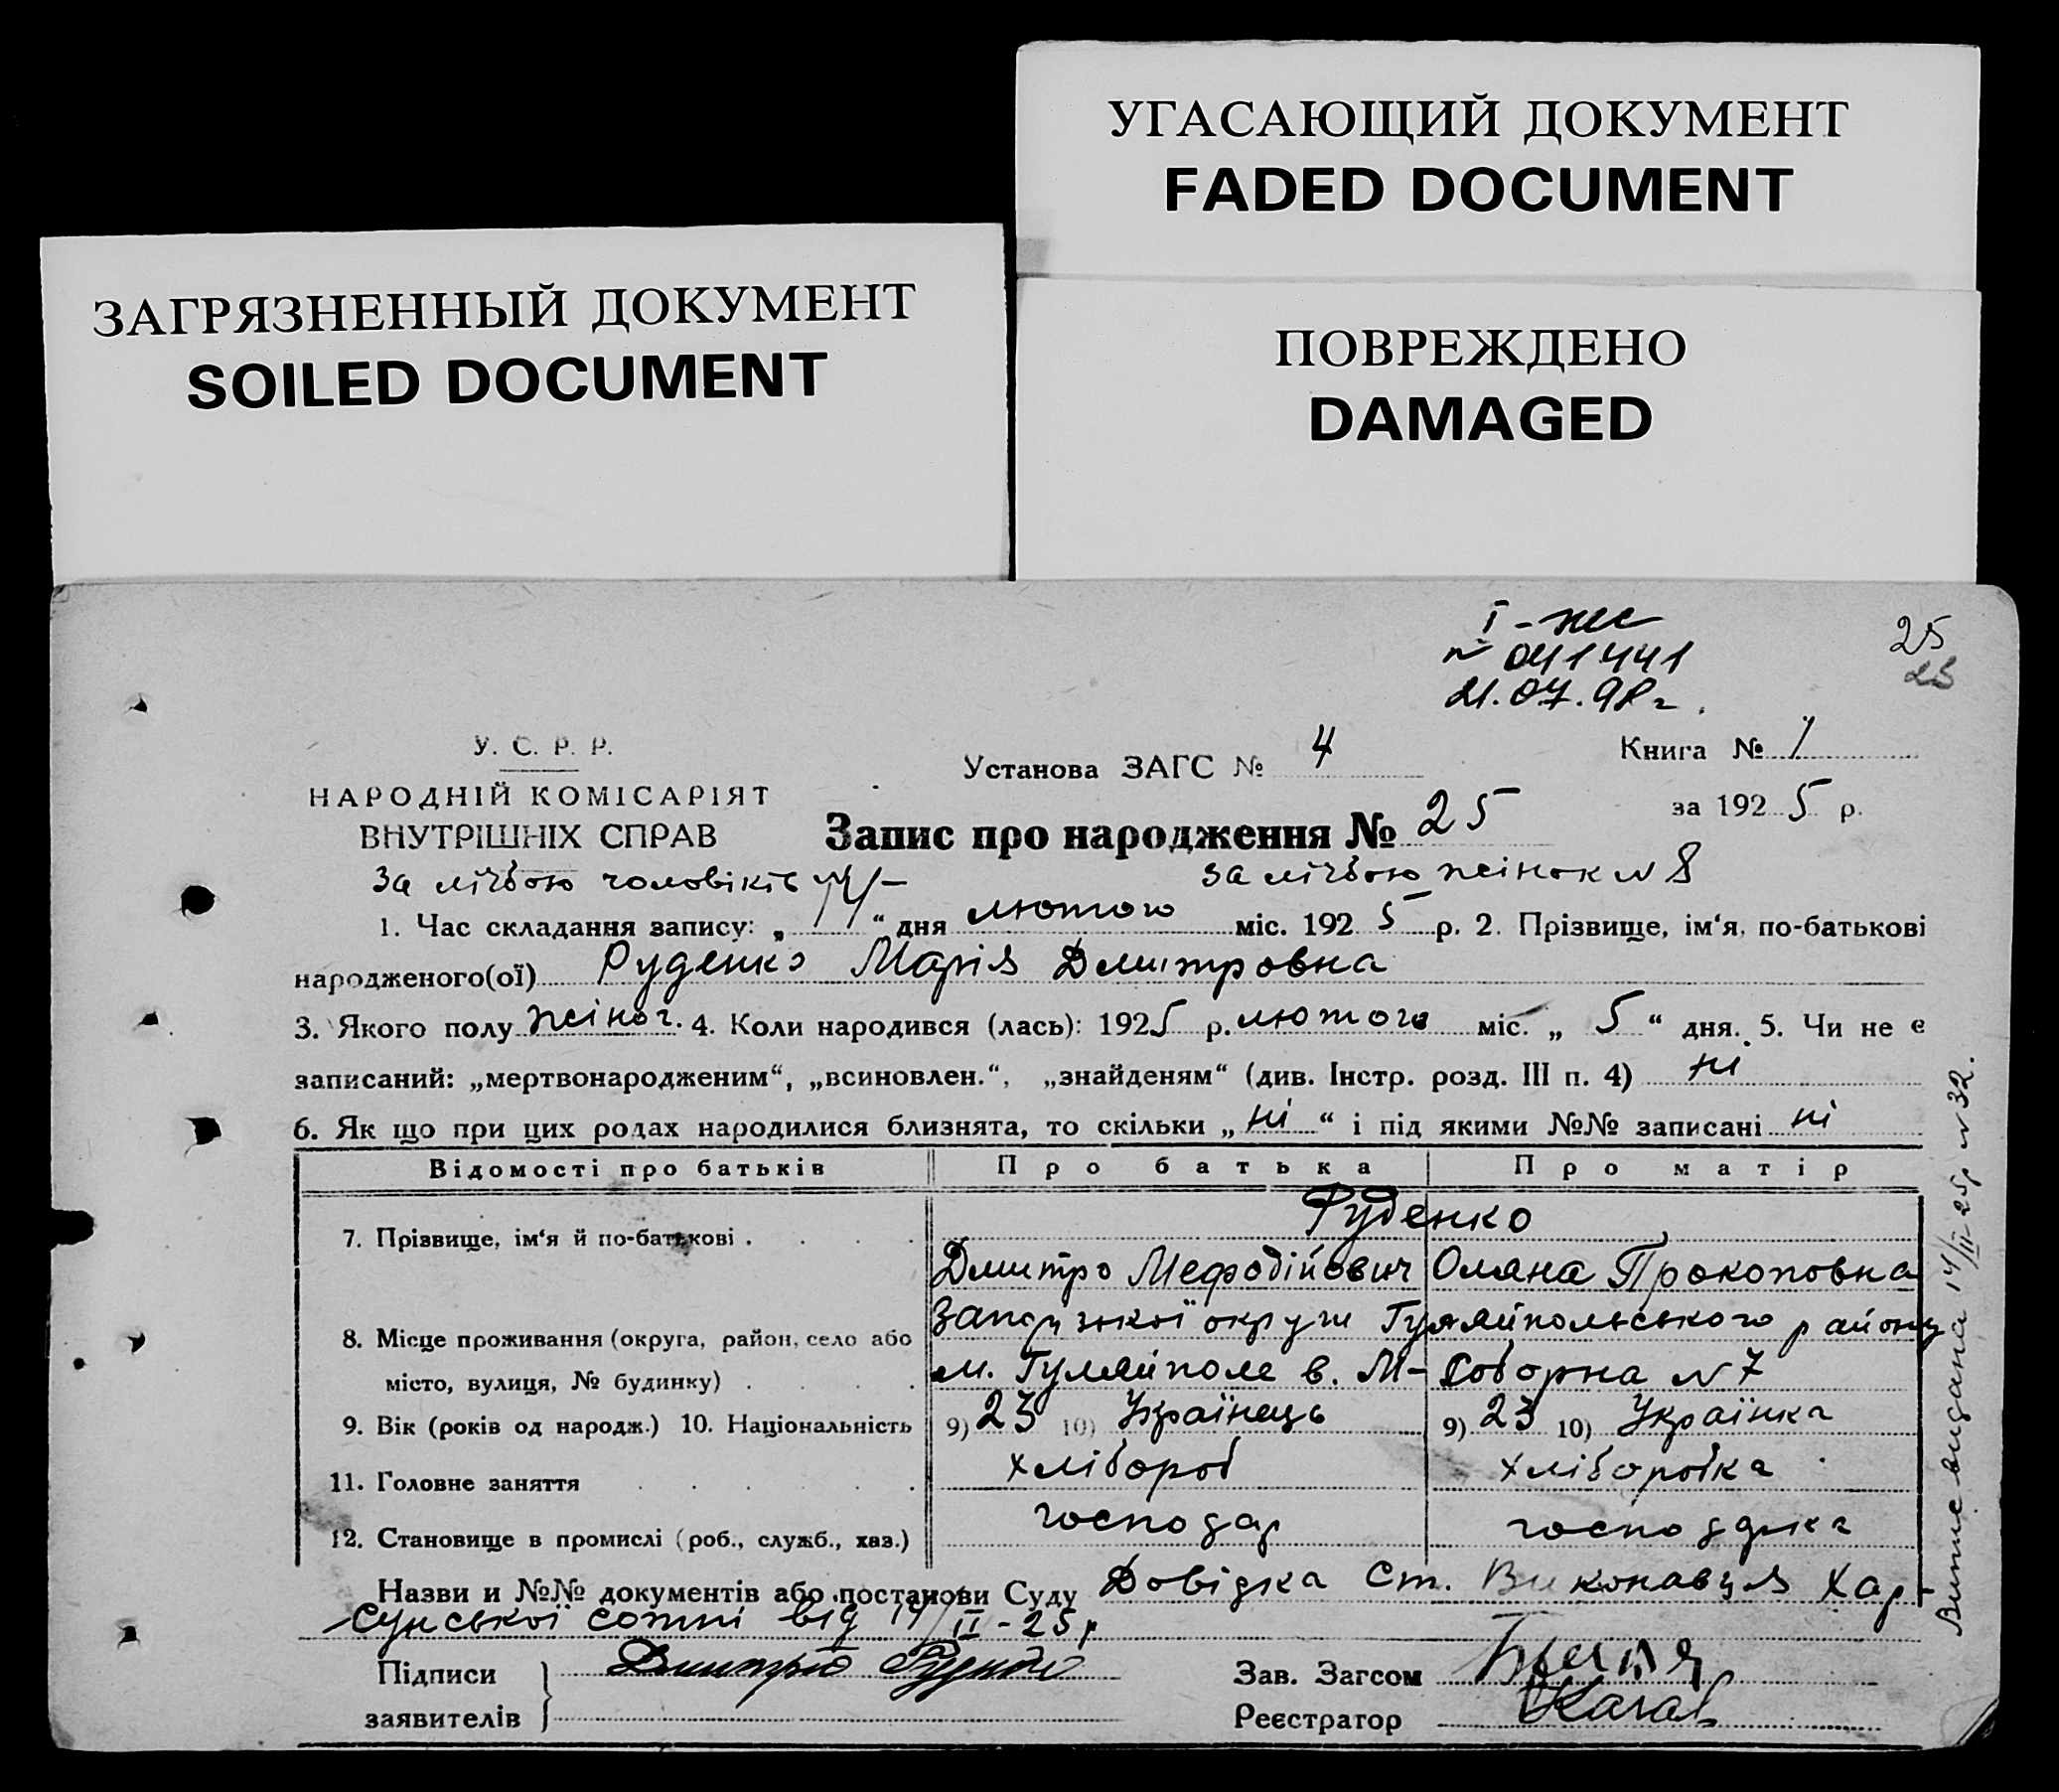 УГАСАЮЩИЙ ДОКУМЕНТ
FADED DOCUMENT
ЗАГРЯЗНЕННЫЙ ДОКУМЕНТ
SOILED DOCUMENT
ПОВРЕЖДЕНО
DAMAGED
І-жс
№ 041441
21.07.98 г.
25
25
У. С. Р. Р.
НАРОДНІЙ КОМІСАРІЯТ
ВНУТРІШНІХ СПРАВ
Установа ЗАГС № 4
Книга № 1
за 1925 р.
Запис про народження № 25
за лічбою чоловіків
за лічбою жінок № 8
1. Час складання запису: „14“ дня лютого міс. 1925 р. 2. Прізвище, ім‘я, по-батькові
народженого(ої) Руденко Марія Дмитровна
3. Якого полу жіноч. 4. Коли народився (лась): 1925 р. лютого міс. „5“ дня. 5. Чи не є
записаний: „мертвонародженим“, „всиновлен.“, „знайденям“ (див. Інстр. розд. III п. 4) ні
6. Як що при цих родах народилися близнята, то скільки „ні“ і під якими №№ записані ні
Відомості про батьків Про батька Про матір
Руденко
7. Прізвище, ім‘я й по-батькові . . . .
Дмитро Мефодійович Оляна Прокоповна
Запорізької округи Гуляйпольського району
8. Місце проживання (округа, район, село або
місто, вулиця, № будинку) . . . .
м. Гуляйполе в. М-Соборна № 7
9. Вік (років од народж.) 10. Національність 9) 23 10) Українець 9) 23 10) Українка
11. Головне заняття . . . . . . хлібороб хліборобка
12. Становище в промислі (роб., служб., хаз.) господар господарка
Назви и №№ документів або постанови Суду Довідка Ст. Виконавця Хар-
сунської сотні від 14/II-25р
Підписи
заявителів
Дмитро Руденко
Зав. Загсом
Реєстратор
Витяг видана 14/II-25р № 32.